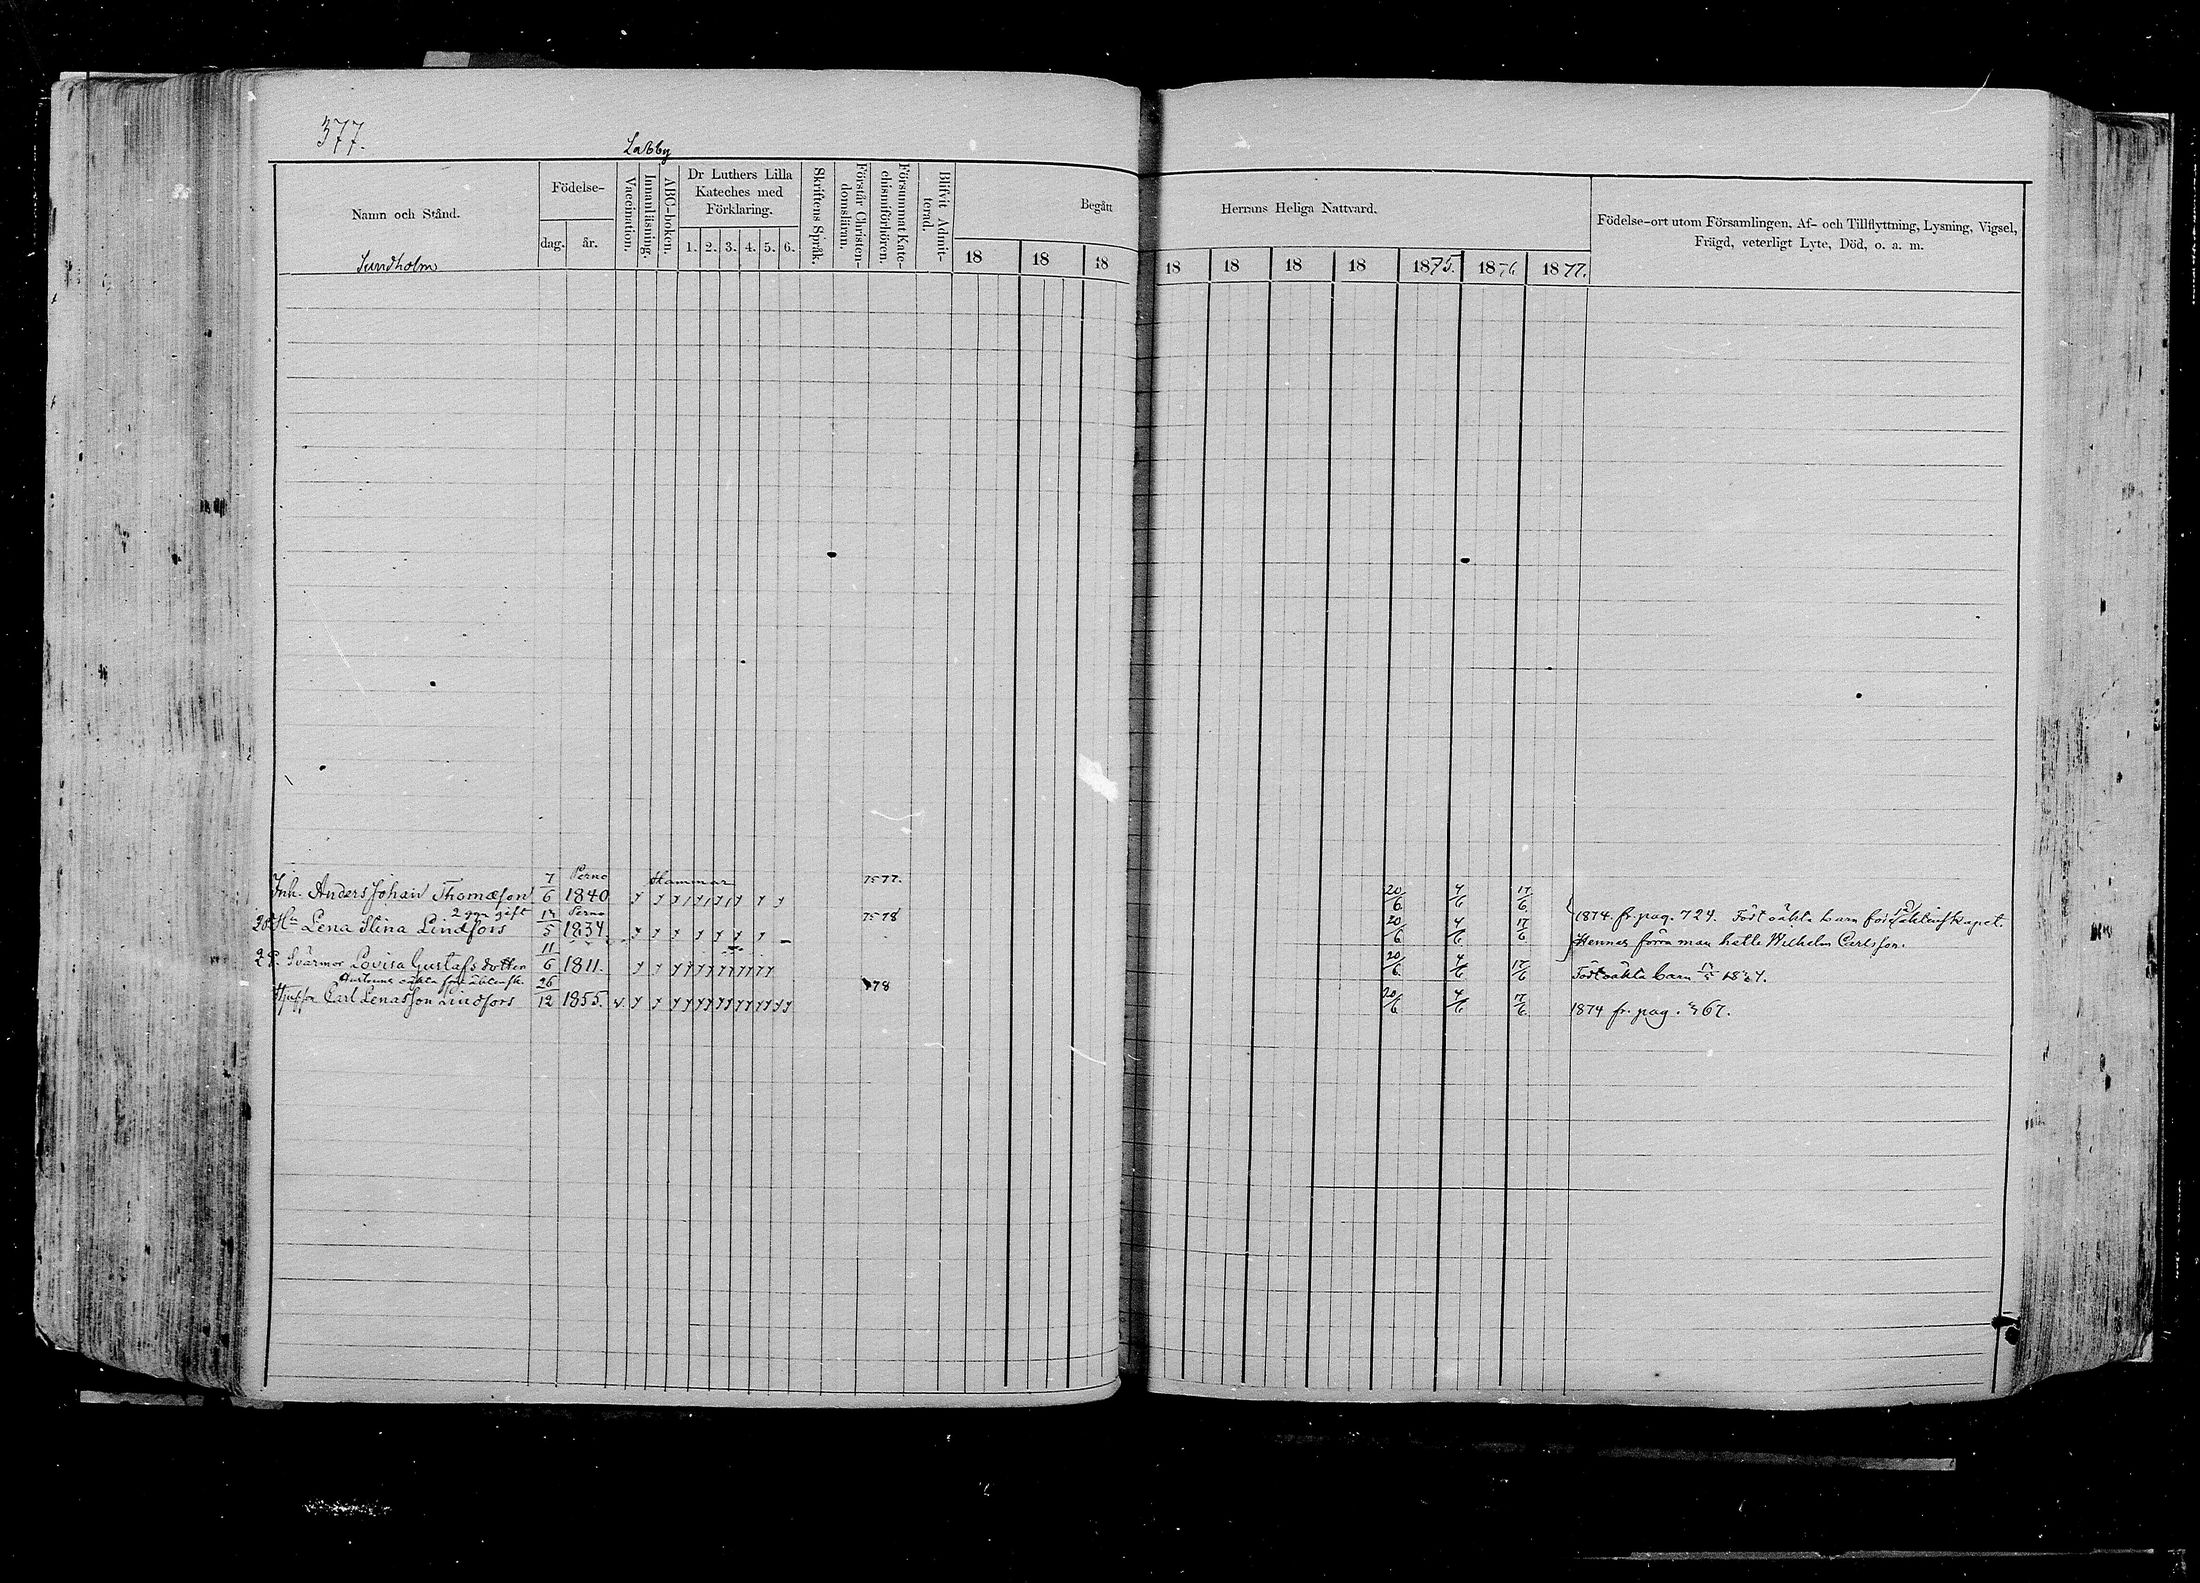 377.
Labby
Namn och Stånd.
Sundholm
Födelse-
dag.
år.
Vaccination.
Innanläsning.
ABC-boken.
Dr Luthers Lilla
Kateches med
Förklaring.
1. 2. 3. 4. 5. 6.
Skriftens Språk.
Förstår Christen-
domsläran.
Försummat Kate-
chismiförhören.
Blifvit Admit-
terad.
Begått
Herrans Heliga Nattvard.
18 18 18 18 18 18 18 1875. 1876 1877.
Födelse-ort utom Församlingen, Af- och Tillflyttning, Lysning, Vigsel,
Frägd, veterligt Lyte, Död, o. a. m.
7 Perno Hammar 75 77.
Inh. Anders Johan Thomæson 6 1840 20/6 4/6 17/6
2 gen gift Perno 75 78
Hu Lena Stina Lindfors 5 1834. 20/6 4/6 17/6 1874. fr. pag. 724. Född oäkta barn före äktenskapet.
Hennes förra man hette Wilhelm Carlsson.
11
Svärmor Lovisa Gustafsdotter 6 1811. 20/6 4/6 17/6 Född oäkta barn
26 78
Carl Lenasson Lindfors 12 1855. v. 20/6 4/6 17/6 1874 fr. pag.